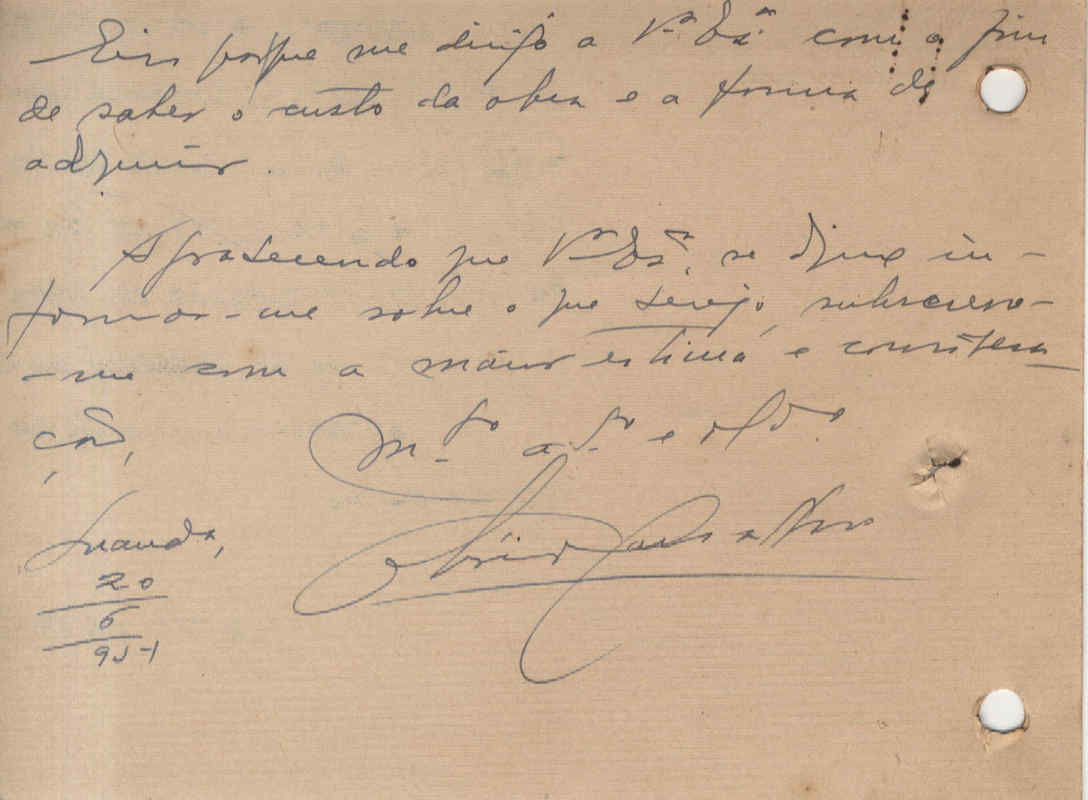 Eis porque me dirijo a V. Exª. com o fim
de saber o custo da obra e a forma de
adquirir.
Agradecendo que V. Exª. se digne in-
formar-me sobre o que desejo, subscrevo-
-me com a maior estima e considera
ção,
M.to a.to e
Luanda,
20
6
951